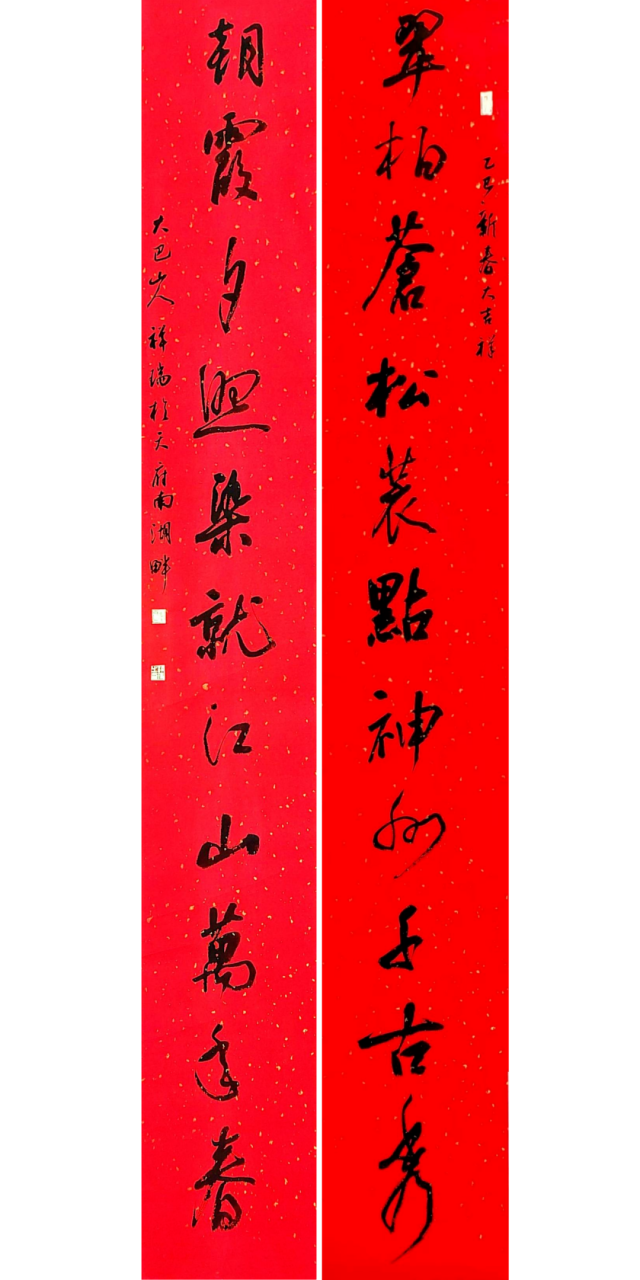 乙巳新春大吉祥
翠柏蒼松裝點神州千古秀
朝霞夕照染就江山萬年春
大巴山人祥瑞於天府南湖畔